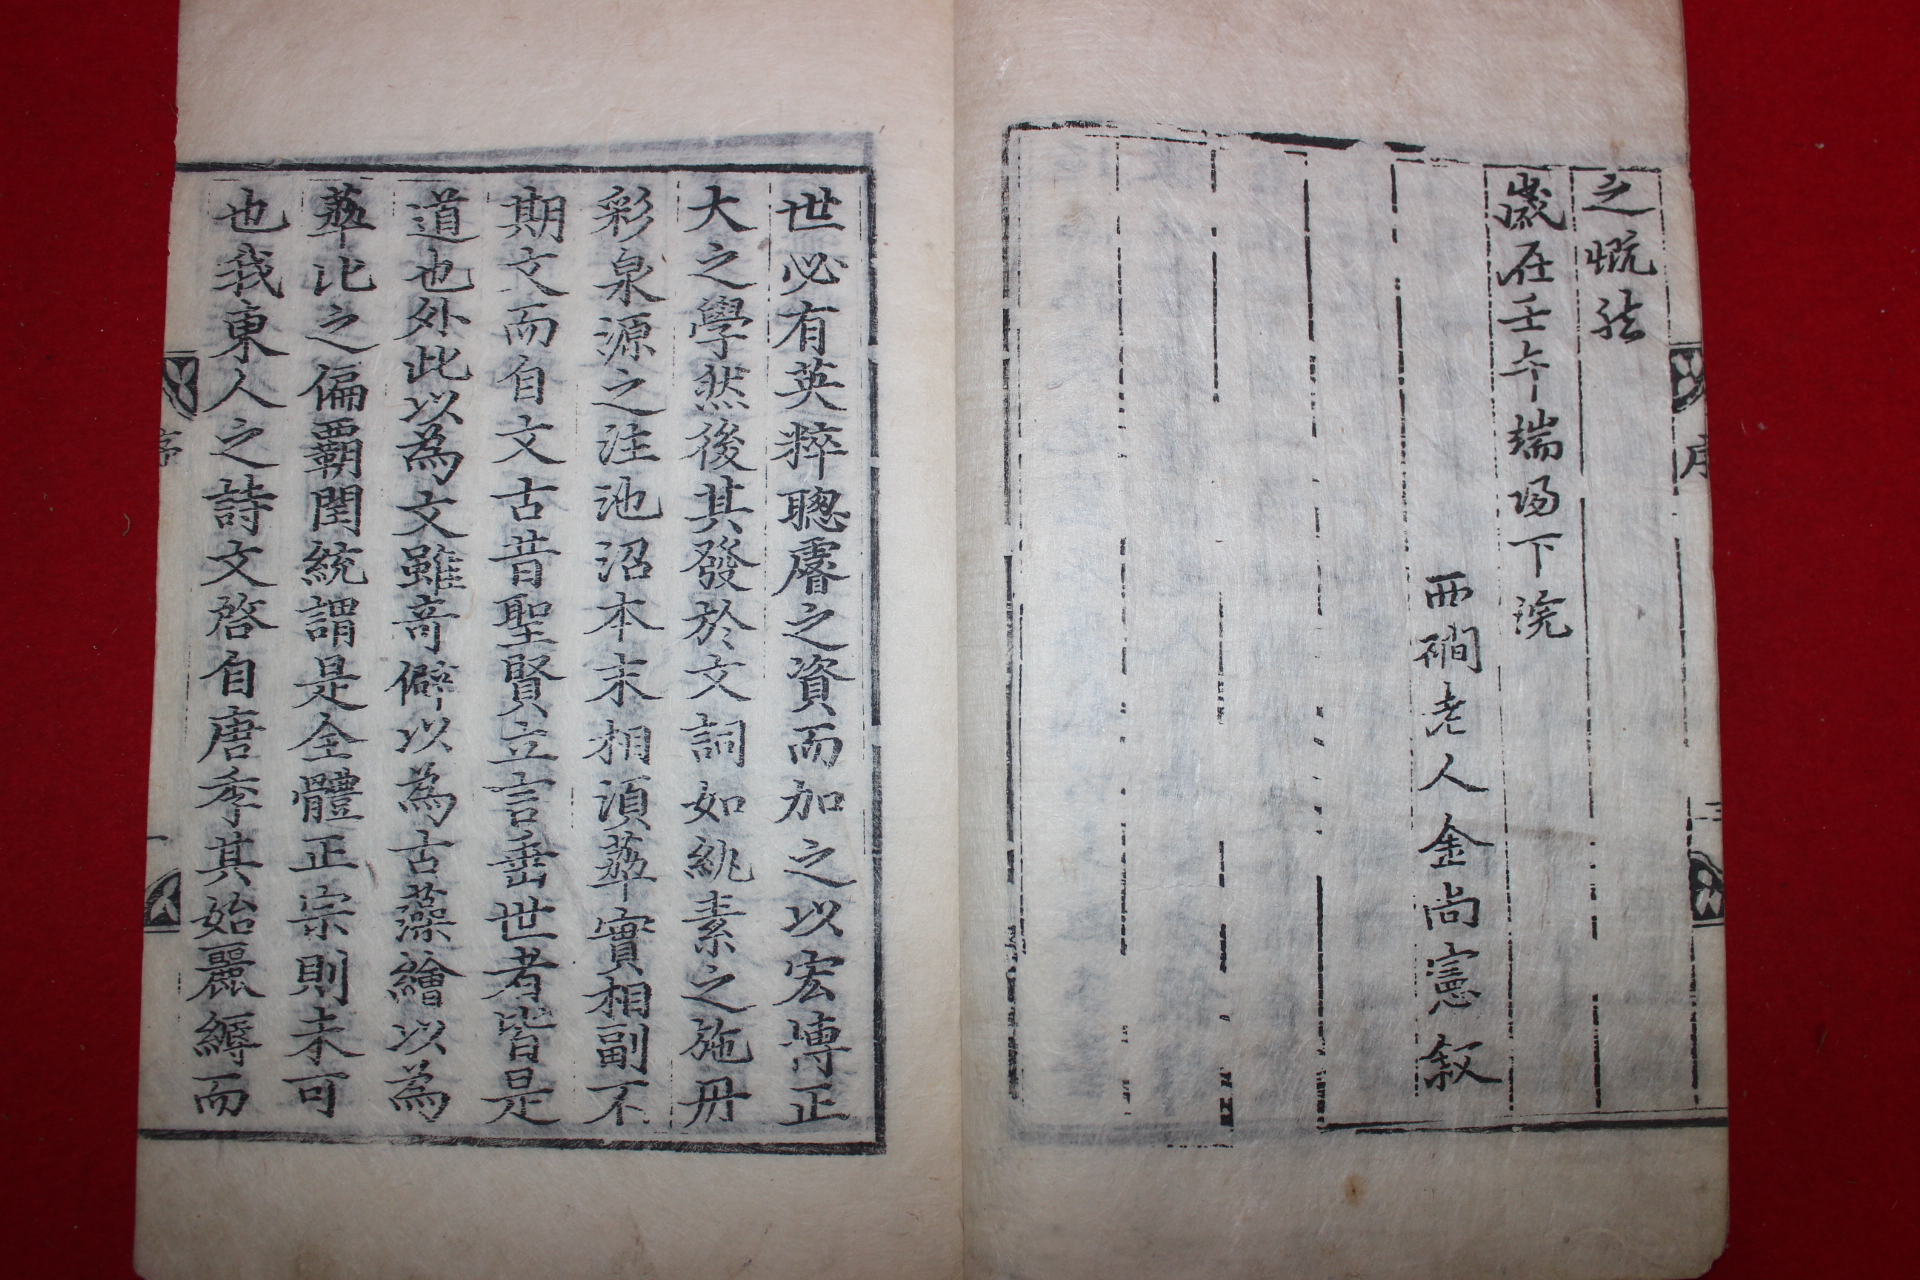 之慨於
歲在壬午端陽下浣
西磵老人金尙憲叙
序
三
世必有英粹聰睿之資而加之以宏博正
大之學然後其發於文詞如絺素之施丹
彩泉源之注池沼本末相須華實相副不
期文而自文古昔聖賢立言垂世者皆是
道也外此以為文雖奇僻以為古藻繪以為
華比之偏覇閏統謂是全體正宗則未可
也我東人之詩文啓自唐季其始麗縟而
序
一